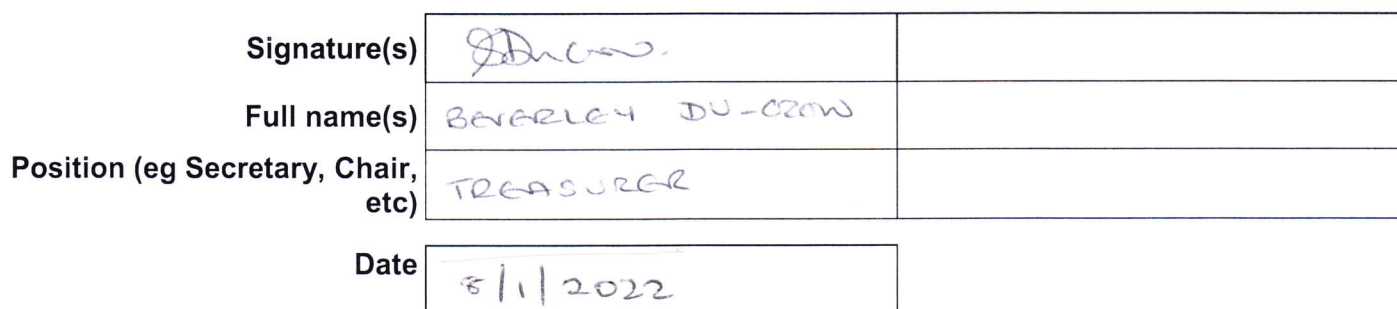 Signature(s)
Full name(s) BEVERLEY DU-CROW
Position (eg Secretary, Chair,
etc) TREASURER
Date 8/1/2022